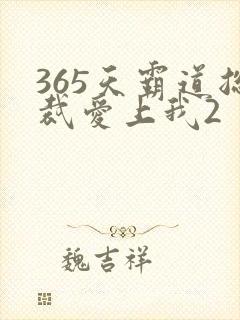 365天霸道总
裁爱上我2
魏吉祥